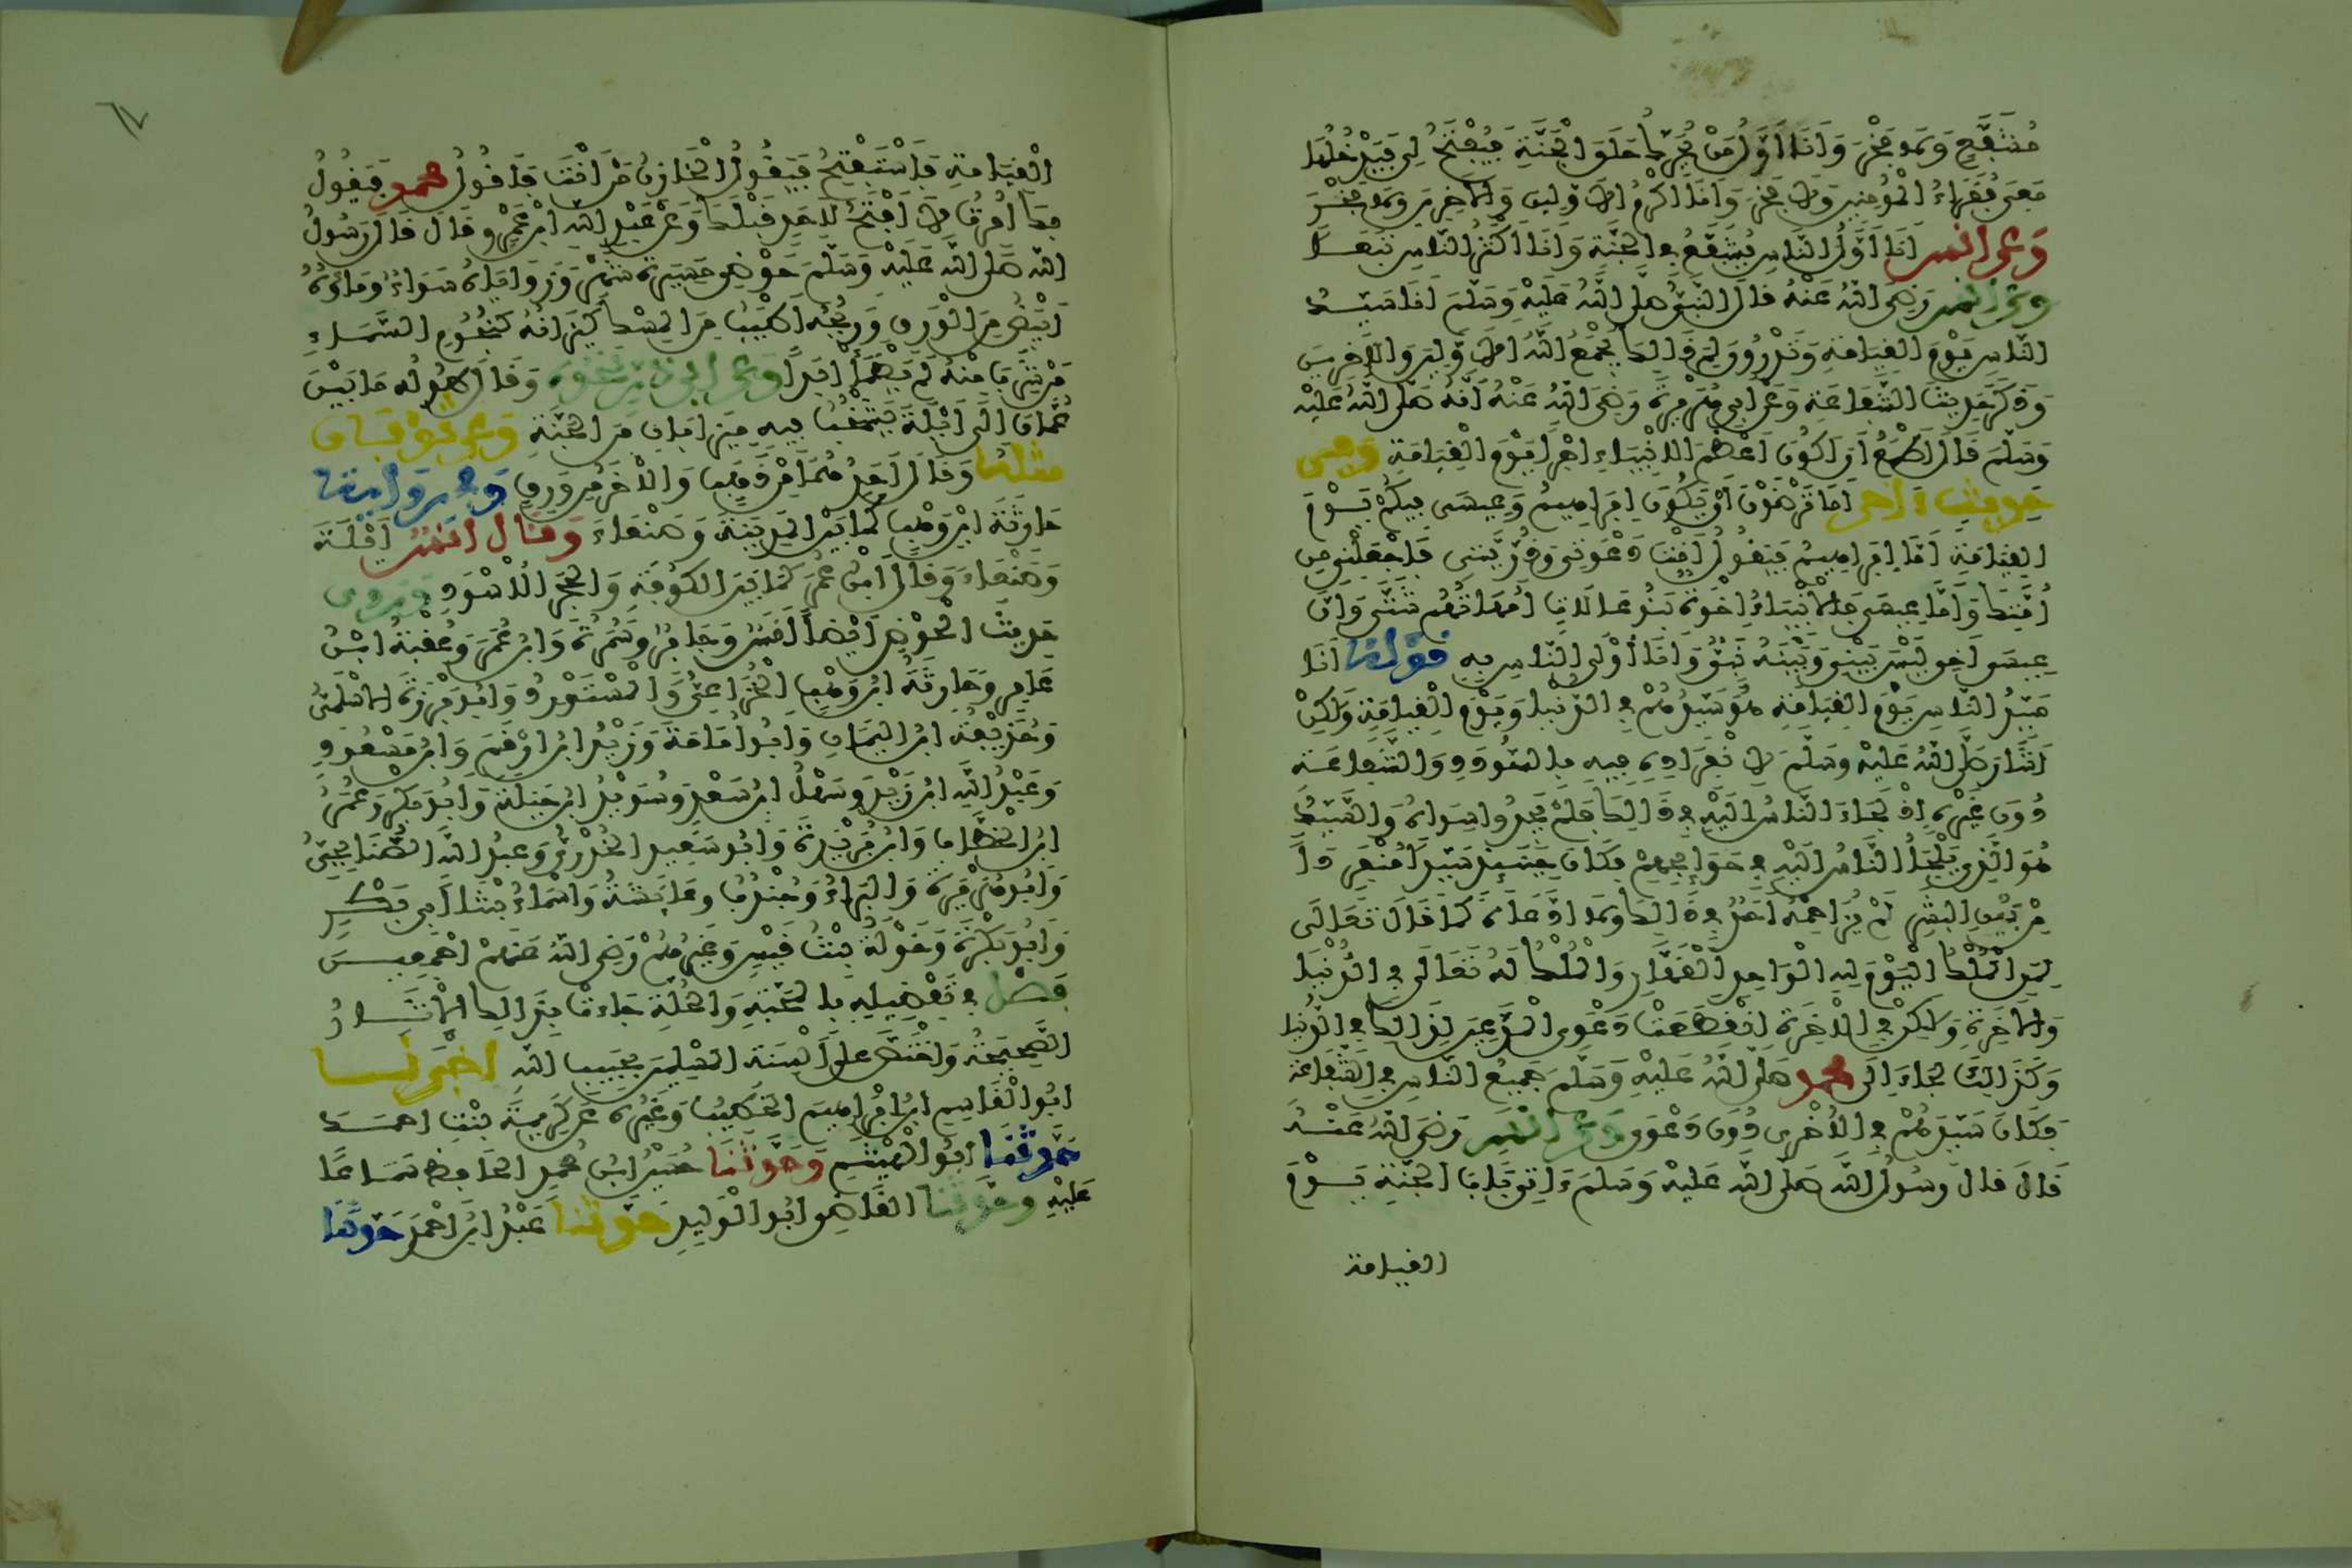 مُشَبَّعٍ وَلَا فَخْرَ وَأَنَا أَوَّلُ مَنْ يُحَرِّكُ حَلَقَ الْجَنَّةِ فَيُفْتَحُ لِي فَيُدْخِلُهَا
مَعِي فُقَرَاءُ الْمُؤْمِنِينَ وَلَا فَخْرَ وَأَنَا أَكْرَمُ الْأَوَّلِينَ وَالْآخِرِينَ وَلَا فَخْرَ
وَعَنْ أَنَسٍ أَنَا أَوَّلُ النَّاسِ يُشَفَّعُ فِي الْجَنَّةِ وَأَنَا أَكْثَرُ النَّاسِ تَبَعًا
وَعَنْ أَنَسٍ رَضِيَ اللهُ عَنْهُ قَالَ النَّبِيُّ صَلَّى اللهُ عَلَيْهِ وَسَلَّمَ أَنَا سَيِّدُ
النَّاسِ يَوْمَ الْقِيَامَةِ وَتَدْرُونَ لِمَ ذَلِكَ يَجْمَعُ اللهُ الْأَوَّلِينَ وَالْآخِرِينَ
وَذَكَرَ حَدِيثَ الشَّفَاعَةِ وَعَنْ أَبِي هُرَيْرَةَ رَضِيَ اللهُ عَنْهُ أَنَّهُ صَلَّى اللهُ عَلَيْهِ
وَسَلَّمَ قَالَ أَطْمَعُ أَنْ أَكُونَ أَعْظَمَ الْأَنْبِيَاءِ أَجْرًا يَوْمَ الْقِيَامَةِ وَفِي
حَدِيثٍ آخَرَ أَمَا تَرْضَوْنَ أَنْ يَكُونَ إِبْرَاهِيمُ وَعِيسَى فِيكُمْ يَوْمَ
الْقِيَامَةِ أَمَّا إِبْرَاهِيمُ فَيَقُولُ أَنْتَ دَعْوَتِي وَذُرِّيَّتِي فَاجْعَلْنِي مِنْ
أُمَّتِكَ وَأَمَّا عِيسَى فَالْأَنْبِيَاءُ إِخْوَةٌ بَنُو عَلَّاتٍ أُمَّهَاتُهُمْ شَتَّى وَإِنَّ
عِيسَى أَخِي لَيْسَ بَيْنِي وَبَيْنَهُ نَبِيٌّ وَأَنَا أَوْلَى النَّاسِ بِهِ قَوْلُهُ أَنَا
سَيِّدُ النَّاسِ يَوْمَ الْقِيَامَةِ هُوَ سَيِّدُهُمْ فِي الدُّنْيَا وَيَوْمَ الْقِيَامَةِ وَلَكِنْ
أَشَارَ صَلَّى اللهُ عَلَيْهِ وَسَلَّمَ لِانْفِرَادِهِ فِيهِ بِالسُّودَدِ وَالشَّفَاعَةِ
دُونَ غَيْرِهِ إِذْ لَجَأَ النَّاسُ إِلَيْهِ فِي ذَلِكَ فَلَمْ يَجِدُوا سِوَاهُ وَالسَّيِّدُ
هُوَ الَّذِي يَلْجَأُ النَّاسُ إِلَيْهِ فِي حَوَائِجِهِمْ فَكَانَ حِينَئِذٍ سَيِّدًا مُنْفَرِدًا
مِنْ بَيْنِ الْبَشَرِ لَمْ يُزَاحِمْهُ أَحَدٌ فِي ذَلِكَ وَلَا ادَّعَاهُ كَمَا قَالَ تَعَالَى
لِمَنِ الْمُلْكُ الْيَوْمَ لِلهِ الْوَاحِدِ الْقَهَّارِ وَالْمُلْكُ لَهُ تَعَالَى فِي الدُّنْيَا
وَالْآخِرَةِ وَلَكِنْ فِي الْآخِرَةِ انْقَطَعَتْ دَعْوَى الْمُدَّعِينَ لِذَلِكَ فِي الدُّنْيَا
وَكَذَلِكَ لَجَأَ إِلَى مُحَمَّدٍ صَلَّى اللهُ عَلَيْهِ وَسَلَّمَ جَمِيعُ النَّاسِ فِي الشَّفَاعَةِ
فَكَانَ سَيِّدَهُمْ فِي الْأُخْرَى دُونَ دَعْوَى وَعَنْ أَنَسٍ رَضِيَ اللهُ عَنْهُ
قَالَ قَالَ رَسُولُ اللهِ صَلَّى اللهُ عَلَيْهِ وَسَلَّمَ ءَاتِي بَابَ الْجَنَّةِ يَوْمَ
القيامة
الْقِيَامَةِ فَأَسْتَفْتِحُ فَيَقُولُ الْخَازِنُ مَنْ أَنْتَ فَأَقُولُ مُحَمَّدٌ فَيَقُولُ
بِكَ أُمِرْتُ لَا أَفْتَحُ لِأَحَدٍ قَبْلَكَ وَعَنْ عَبْدِ اللهِ ابْنِ عَمْرٍو قَالَ قَالَ رَسُولُ
اللهِ صَلَّى اللهُ عَلَيْهِ وَسَلَّمَ حَوْضِي مَسِيرَةُ شَهْرٍ وَزَوَايَاهُ سَوَاءٌ وَمَاؤُهُ
أَبْيَضُ مِنَ الْوَرِقِ وَرِيحُهُ أَطْيَبُ مِنَ الْمِسْكِ كِيزَانُهُ كَنُجُومِ السَّمَاءِ
مَنْ شَرِبَ مِنْهُ لَمْ يَظْمَأْ أَبَدًا وَعَنْ أَبِي ذَرٍّ نَحْوُهُ وَقَالَ طُولُهُ مَا بَيْنَ
عُمَانَ إِلَى أَيْلَةَ يَشْخُبُ فِيهِ مِيزَابَانِ مِنَ الْجَنَّةِ وَعَنْ ثَوْبَانَ
مِثْلُهُ وَقَالَ أَحَدُهُمَا مِنْ ذَهَبٍ وَالْآخَرُ مِنْ وَرِقٍ وَفِي رِوَايَةِ
حَارِثَةَ ابْنِ وَهْبٍ كَمَا بَيْنَ الْمَدِينَةِ وَصَنْعَاءَ وَقَالَ أَنَسٌ أَيْلَةَ
وَصَنْعَاءَ وَقَالَ ابْنُ عُمَرَ كَمَا بَيْنَ الْكُوفَةِ وَالْحَجَرِ الْأَسْوَدِ وَرَوَى
حَدِيثَ الْحَوْضِ أَيْضًا أَنَسٌ وَجَابِرٌ وَسَمُرَةُ وَابْنُ عُمَرَ وَعُقْبَةُ ابْنُ
عَامِرٍ وَحَارِثَةُ ابْنُ وَهْبٍ الْخُزَاعِيُّ وَالْمُسْتَوْرِدُ وَأَبُو بَرْزَةَ الْأَسْلَمِيُّ
وَحُذَيْفَةُ ابْنُ الْيَمَانِ وَأَبُو أُمَامَةَ وَزَيْدُ ابْنُ أَرْقَمَ وَابْنُ مَسْعُودٍ
وَعَبْدُ اللهِ ابْنُ زَيْدٍ وَسَهْلُ ابْنُ سَعْدٍ وَسُوَيْدُ ابْنُ جَبَلَةَ وَأَبُو بَكْرٍ وَعُمَرُ
ابْنُ الْخَطَّابِ وَابْنُ بُرَيْدَةَ وَأَبُو سَعِيدٍ الْخُدْرِيُّ وَعَبْدُ اللهِ الصُّنَابِحِيُّ
وَأَبُو هُرَيْرَةَ وَالْبَرَاءُ وَجُنْدُبٌ وَعَائِشَةُ وَأَسْمَاءُ بِنْتَا أَبِي بَكْرٍ
وَأَبُو بَكْرَةَ وَخَوْلَةُ بِنْتُ قَيْسٍ وَغَيْرُهُمْ رَضِيَ اللهُ عَنْهُمْ أَجْمَعِينَ
فَصْلٌ فِي تَفْضِيلِهِ بِالْمَحَبَّةِ وَالْخُلَّةِ جَاءَتْ بِذَلِكَ الْآثَارُ
الصَّحِيحَةُ وَاخْتَصَّ عَلَى أَلْسِنَةِ الْمُسْلِمِينَ بِحَبِيبِ اللهِ أَخْبَرَنَا
أَبُو الْقَاسِمِ ابْنُ إِبْرَاهِيمَ الْخَطِيبُ وَغَيْرُهُ عَنْ كَرِيمَةَ بِنْتِ أَحْمَدَ
حَدَّثَنَا أَبُو الْهَيْثَمِ وَحَدَّثَنَا حُسَيْنُ ابْنُ مُحَمَّدٍ الْحَافِظُ سَمَاعًا
عَلَيْهِ وَحَدَّثَنَا الْقَاضِي أَبُو الْوَلِيدِ حَدَّثَنَا عَبْدُ ابْنُ أَحْمَدَ حَدَّثَنَا